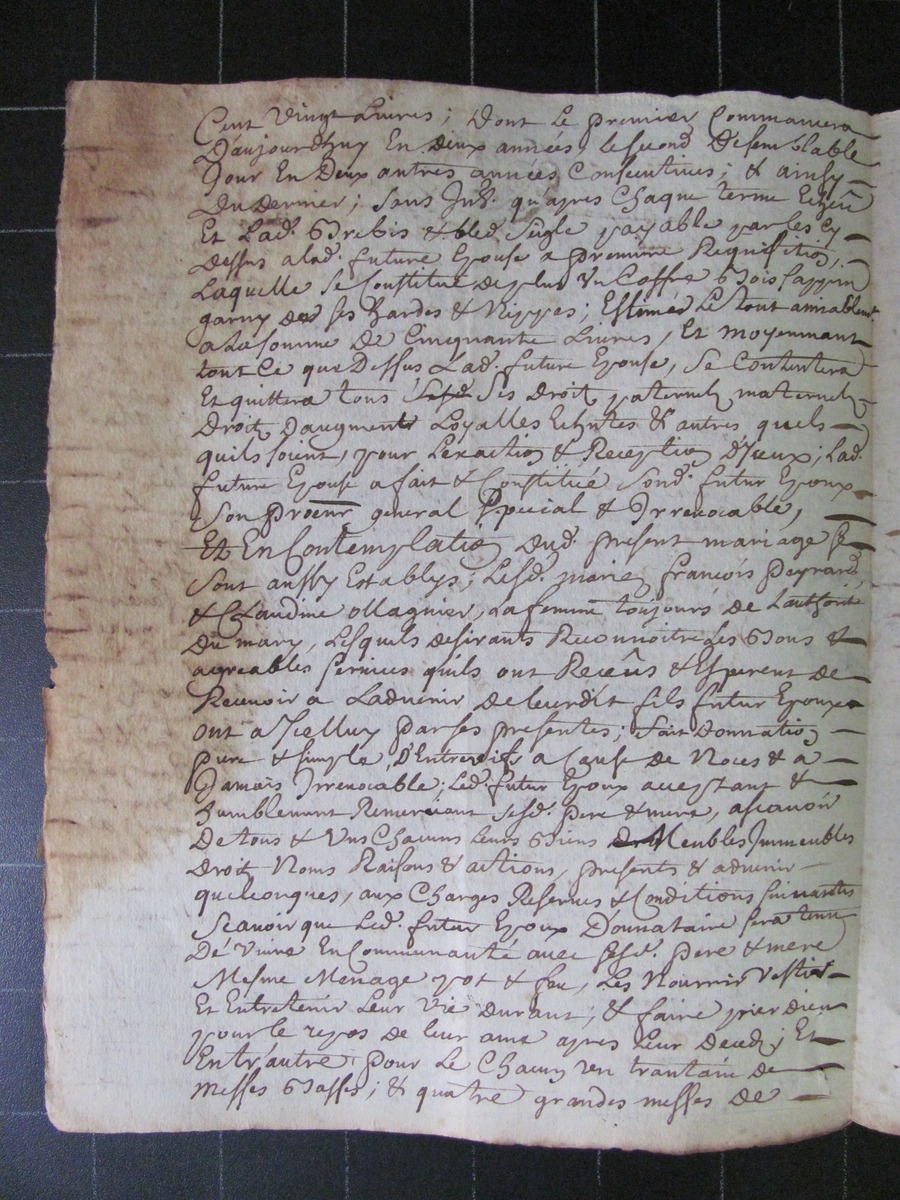 Cent Vingt Livres; Dont Le premier Commancera
Daujourdhuy En Deux années, le second Desemblable
Jour En Deux autres années Consecutives; & ainsy
Du Dernier; sans Jnt. qu'apres Chaque terme Echeû
Et Lad. Brebis & bled seigle payable par les cy
Dessus a lad. future Epouse a premiere Requisition,
Laquelle se Constitue de plus Vn Coffre Bois sappin
garny de ses hardes & Nippes; Estimés Le tout amiablemt.
a La somme de Cinquante Livres, Et moyennant
tout Ce que Dessus Lad. future Epouse, se Contentera
Et quittera tous Ses Droit paternels maternels
Droit Daugment Loyalles Echutes & autres quels
quils soient, pour Lexaction & Reception D'jceux; Lad.
future Epouse a fait & Constitué Sond. futur Epoux
Son procur general special & Irrevocable,
Et En Contemplation dud. present mariage se
Sont aussy Establys; Lesd. mariez françois Peyrard
& Claudine ollagnier, La femme toujours de Lauthorité
Du mary, Lesquels desirants Reconnoitre Les Bons &
agreables services quils ont Recûs & Esperent de
Recevoir a Ladvenir de leurdit fils futur Epoux
ont a Jcelluy par ses presentes; fait Donnation
pure & simple, D'Entre vifs a Cause de Noces & a
Jamais Irrevocable; Led. futur Epoux acceptant &
humblement Remerciant sesd. Pere & mere, ascavoir
De tous & Vns Chacuns Leurs Biens Meubles Immeubles
Droit, Noms Raisons & actions, presents & advenir
quelconques, aux Charges Reserves & Conditions suivantes
Scavoir que Led. futur Epoux Donnataire sera tenu
De Vivre En Communauté avec sesd. pere & mere
Mesme Menage pot & feu, Les Nourrir Vestir
Et Entretenir Leur Vie Durant; & faire prier dieu
pour le repos de leur ame apres Leur Deced; Et
Entr'autre pour Le Chacun un trantain de
messes Basses; & quatre grandes messes de